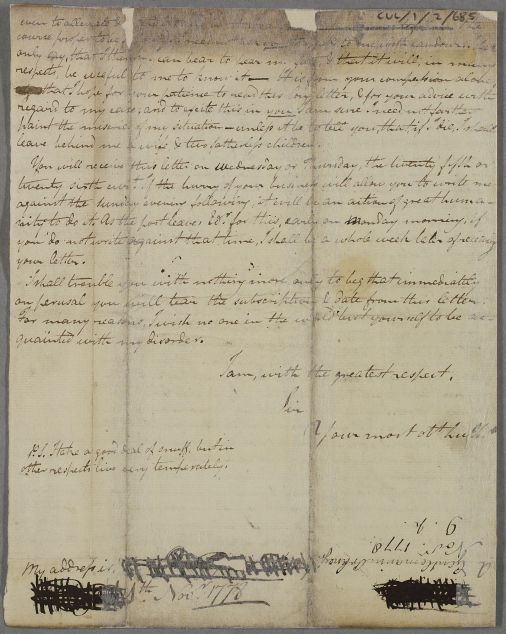 CUL/1/2/685
even to alleviate
course proper to
only say, that I can bear to hear &
respects, be useful to me to know it — It is from your compassion alone
that I hope for your patience to read this long letter, & for your advice with
regard to my case; and to excite this in you I am sure I need not farther
paint the misery of my situation — unless it be to tell you, that, if I die, I shall
leave behind me a wife & two fatherless children.
You will receive this letter on Wednesday or Thursday, the twenty fifth or
twenty sixth curt. If the hurry of your business will allow you to write me
against the Sunday evening following, it will be an action of great huma-
nity to do it. As the post leaves Edr. for this, early on Monday morning, if
you do not write against that time, I shall be a whole week later of receiving
your letter.
I shall trouble you with nothing more, only to beg that immediately
on perusal you will tear the subscription & date from this letter.
For many reasons, I wish no one in the world but yourself to be ac-
quainted with my disorder.
I am, with the greatest respect,
Sir
Your most obt
P.S. I take a good deal of snuff, but in
other respects live very temperately.
My address is,
Novr. 1778
A Gentleman
Novr. 1778